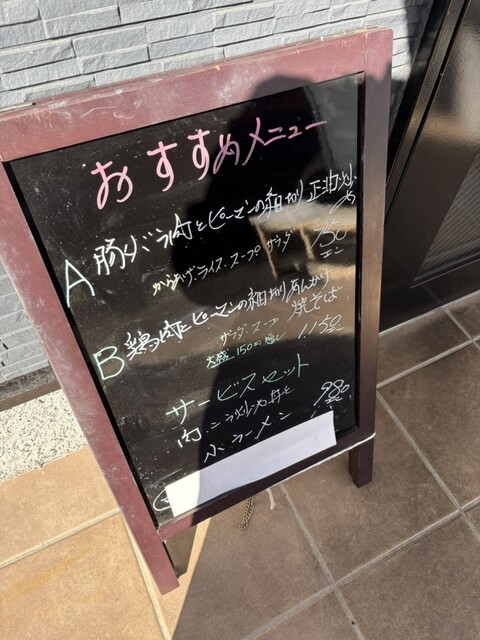 おすすめメニュー
A 豚バラ肉とピーマンの細切り正油炒め
からあげ、ライス、スープ、サラダ 750エン
B 鶏肉とピーマンの細切りあんかけ
焼そば
サラダ、スープ 1.150エン
大盛 150エン増し
サービスセット
肉ニラ炒め丼と 980エン
小ラーメン